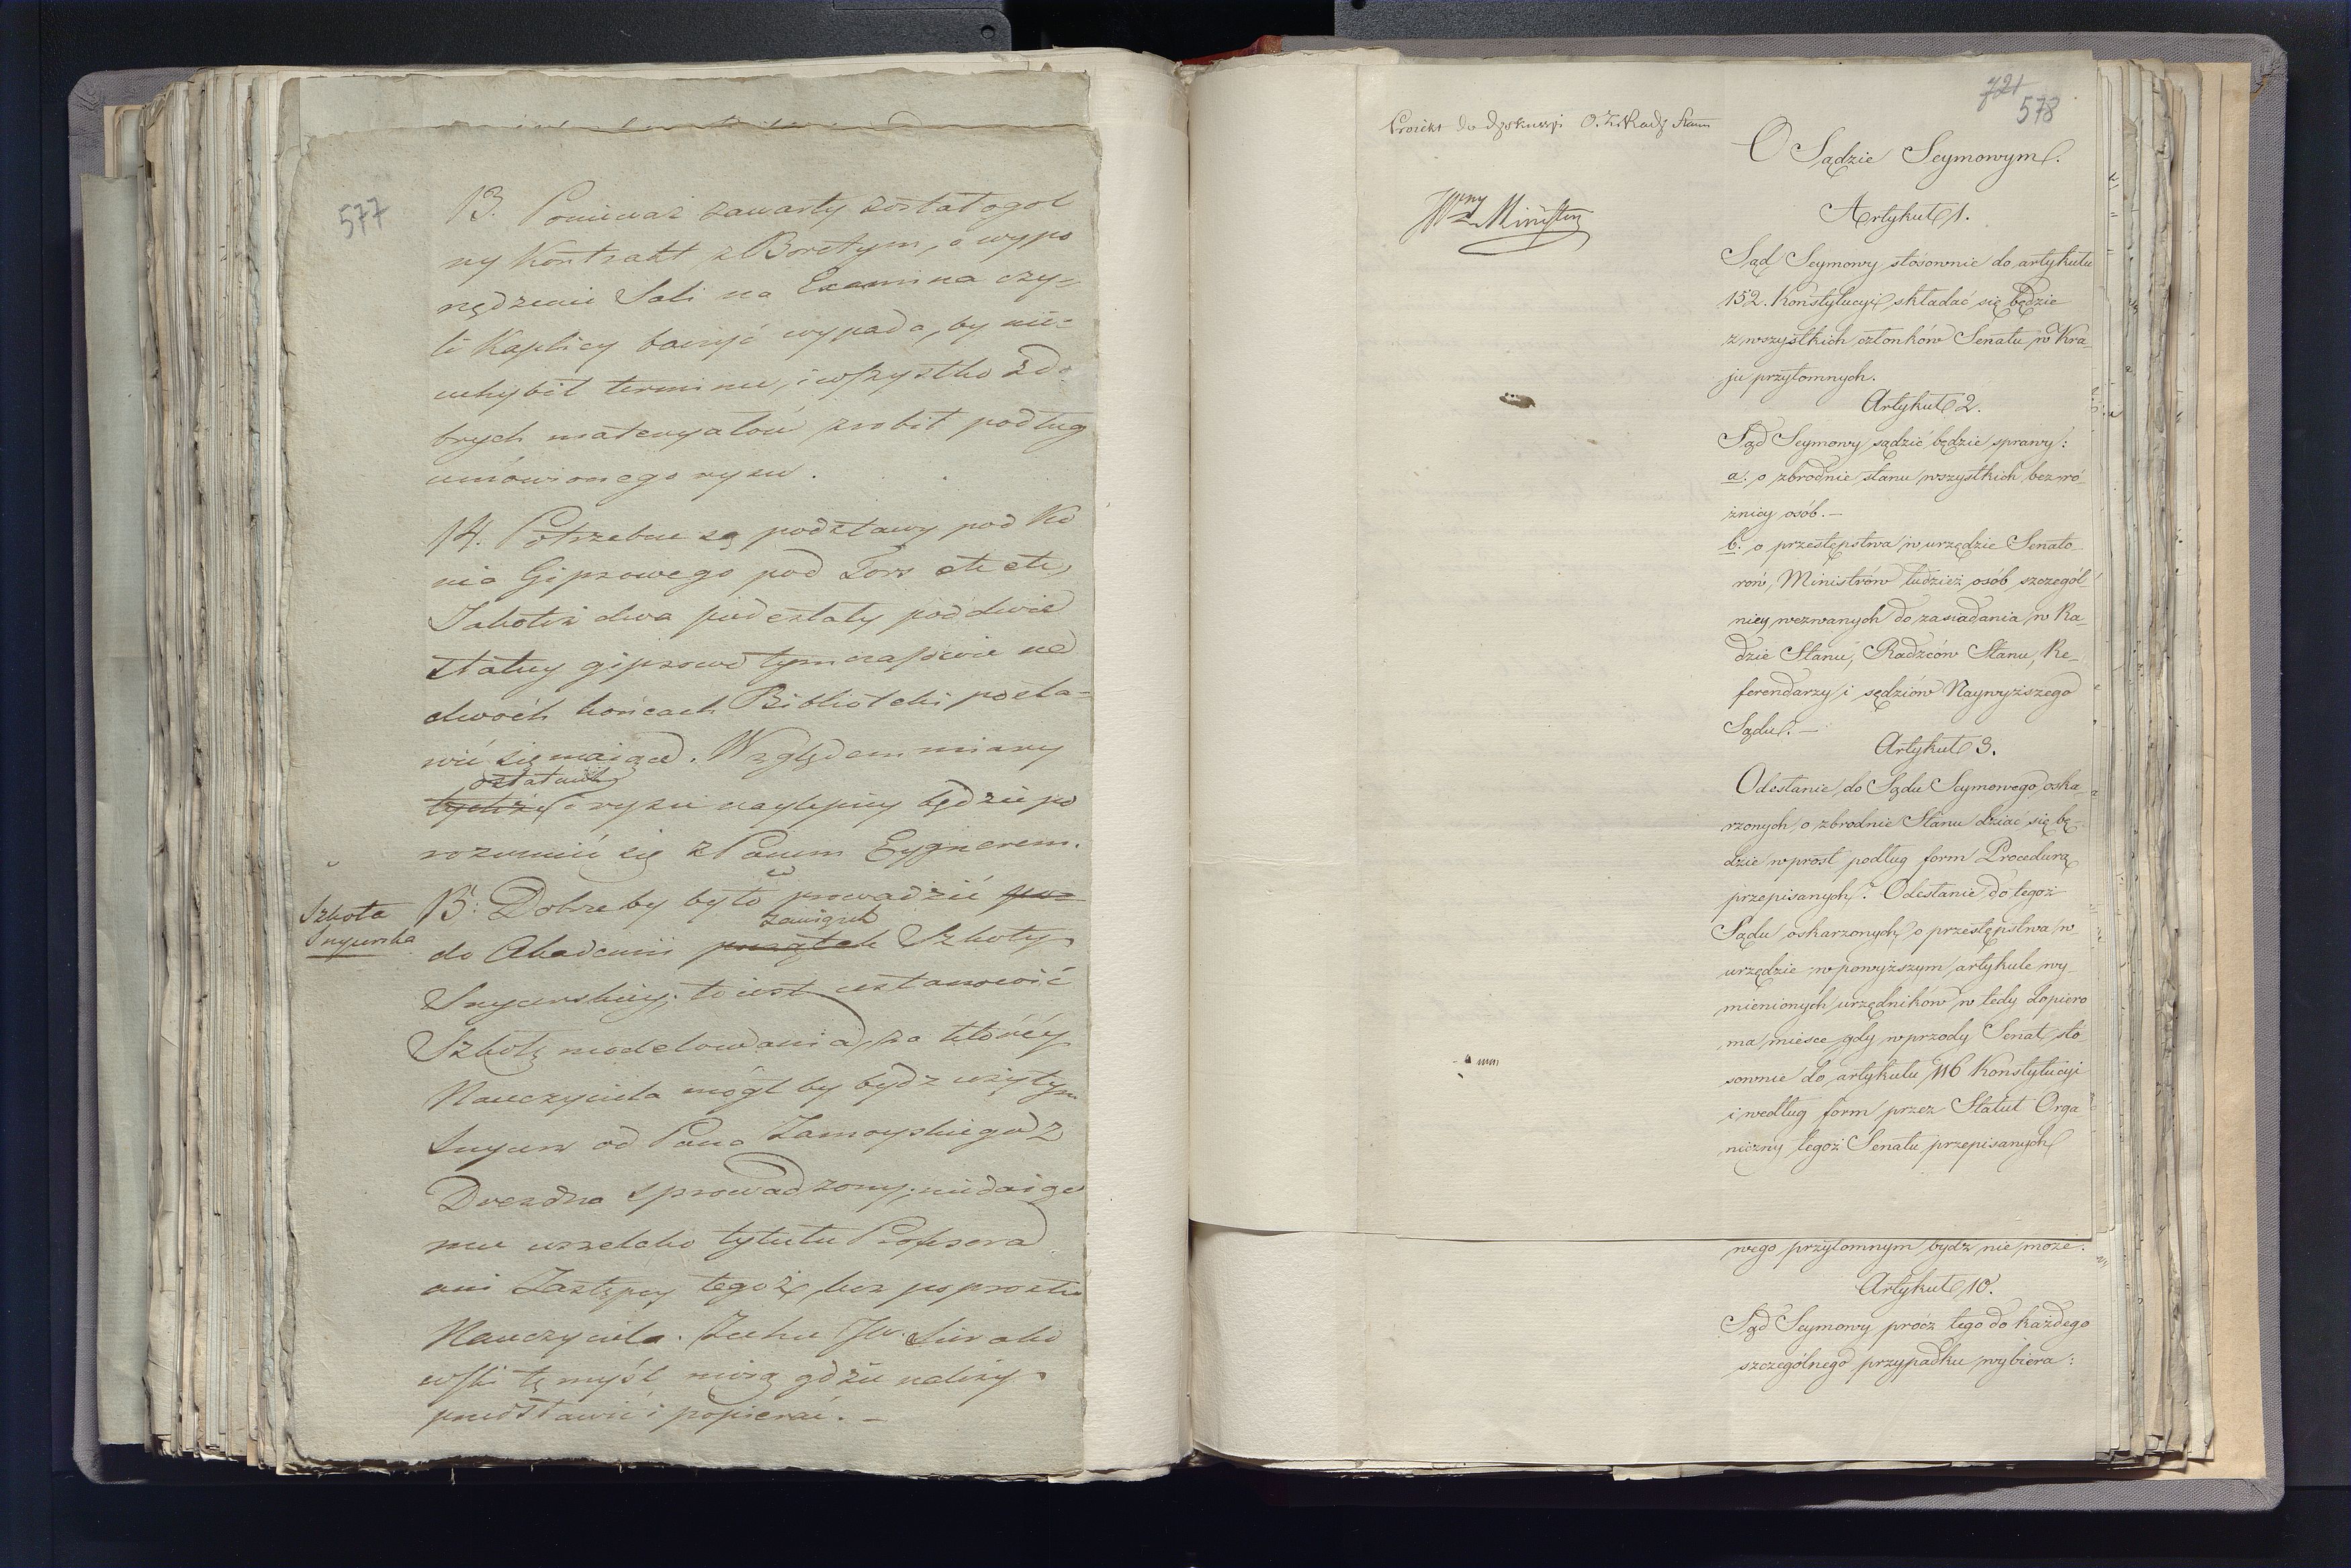 577
13. Ponieważ zawarty został ogol
ny Kontrakt z Boretym, o wypo
rządzenie Sali na Examina czy-
li Kaplicy baczyć wypada, by nie-
uchybił terminu, i wszystko z do
brych materyałów zrobił podług
umówionego rysu.
14. Potrzebne są podstawy pod Ko
nia Gipsowego pod Tors etc etc,
Jakoteż dwa piedestały pod dwie
statuy gipsowe tymczasowie na
dwóch końcach Biblioteki posta-
wić się maiące. Względem miary
ostatnich
tychże i rysu naylepiey będzie po
rozumieć się z Panem Eygnerem.
Szkoła
Snycerska
15. Dobrze by było prowadzić
w
do Akademii początek Szkoły
zawiązek
Snycerskiey, to iest ustanowić
Szkołę modelowania, za którey
Nauczyciela mógł by bydz użytym
Snycerz od Pana Zamoyskiego z
Drezdna sprowadzony; nie daiąc
mu wszelako tytułu Profesora
ani Zastępcy tegoż, lecz po prostu
Nauczyciela. Zechce JW. Sierako
wski tę myśl moią gdzie należy
przedstawić i popierać. —
721
578
Proiekt do dyskussyi O. Z. Rady Stanu
JWny Minister
O Sądzie Seymowym.
Artykuł 1.
Sąd Seymowy stosownie do artykułu
152. Konstytucyi składać się będzie
z wszystkich członków Senatu w Kra-
ju przytomnych.
Artykuł 2.
Sąd Seymowy sądzić będzie sprawy:
a. o zbrodnie stanu wszystkich bez ró-
żnicy osób. —
b. o przestępstwa w urzędzie Senato-
rów, Ministrów tudzież osób szczegól
niey wezwanych do zasiadania w Ra-
dzie Stanu, Radzców Stanu, Re-
ferendarzy i sędziów Naywyższego
Sądu. —
Artykuł 3.
Odesłanie do Sądu Seymowego oska-
rzonych o zbrodnie Stanu dziać się bę-
dzie wprost podług form Procedurą
przepisanych. Odesłanie do tegoż
Sądu oskarzonych o przestępstwa w
urzędzie w powyższym artykule wy-
mienionych urzędników w tedy dopiero
ma miesce gdy wprzody Senat sto-
sownie do artykułu 116 Konstytucyi
i według form przez Statut Orga
niczny tegoż Senatu przepisanych
wego przytomnym bydz nie może.
Artykuł 10.
Sąd Seymowy prócz tego do każdego
szczególnego przypadku wybiera: